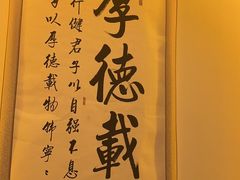 厚德載
行健君子以自强不息
子以厚德載物佛寧